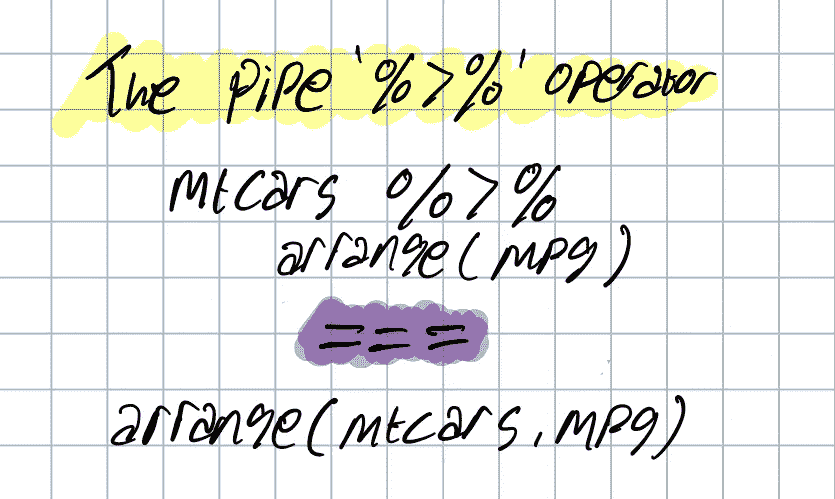 The pipe '%>%' operator
mtcars %>%
arrange(mpg)
===
arrange(mtcars, mpg)